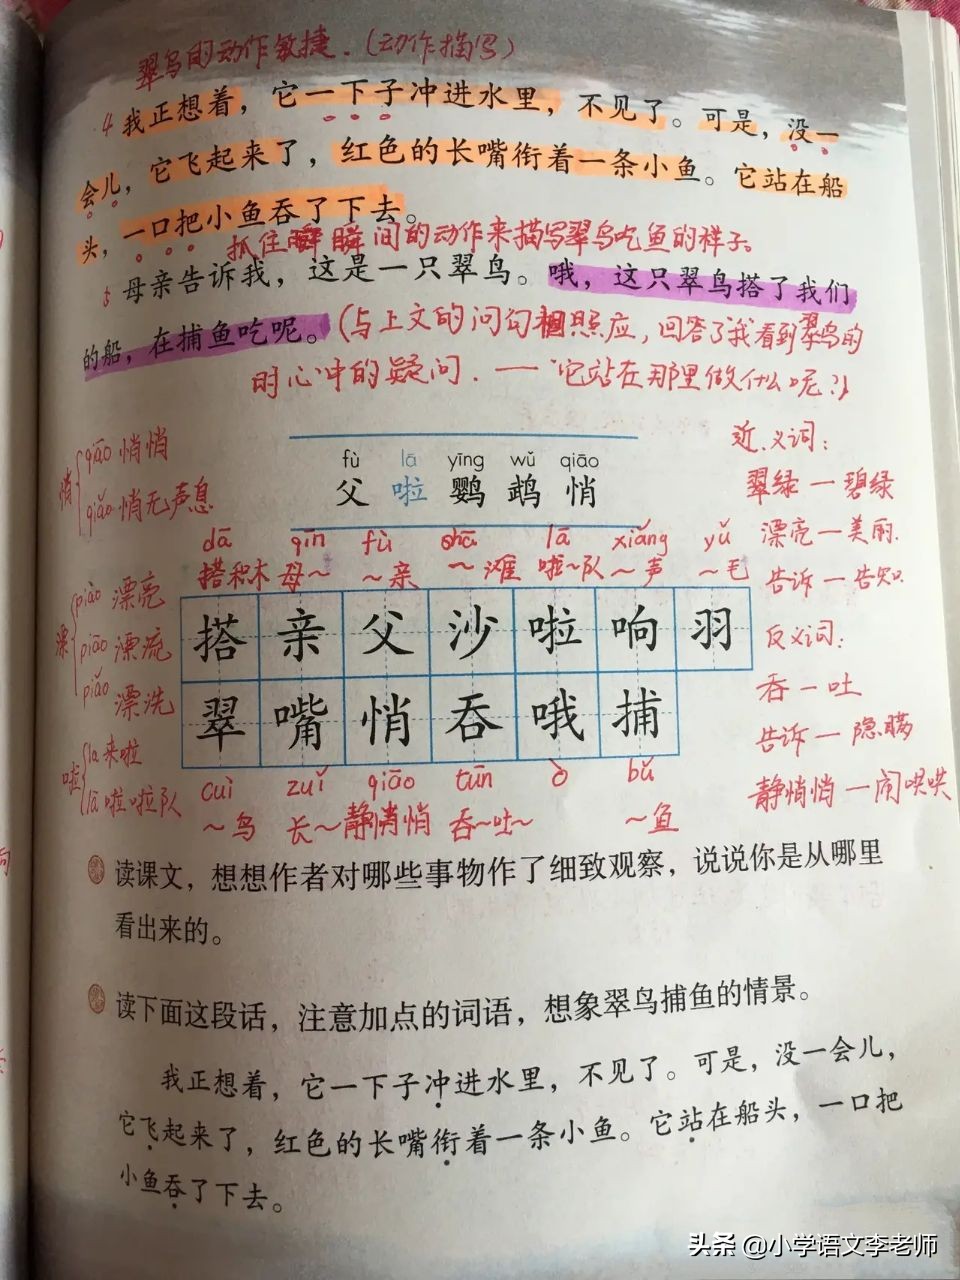 翠鸟的动作敏捷.(动作描写)
4 我正想着，它一下子冲进水里，不见了。可是，没一
会儿，它飞起来了，红色的长嘴衔着一条小鱼。它站在船
头，一口把小鱼吞了下去。
抓住瞬间的动作来描写翠鸟吃鱼的样子。
5 母亲告诉我，这是一只翠鸟。哦，这只翠鸟搭了我们
的船，在捕鱼吃呢。(与上文的问句相照应，回答了我看到翠鸟的
时心中的疑问.——"它站在那里做什么呢?")
fù lā yīng wǔ qiāo
父 啦 鹦 鹉 悄
悄 qiāo 悄悄
qiǎo 悄无声息
漂 piào 漂亮
piāo 漂流
piǎo 漂洗
啦 la 来啦
lā 啦啦队
dā qīn fù shā lā xiǎng yǔ
搭积木 母～ ～亲 ～滩 啦～队 ～声 ～毛
搭 亲 父 沙 啦 响 羽
翠 嘴 悄 吞 哦 捕
cuì zuǐ qiāo tūn ò bǔ
～鸟 长～ 静悄悄 吞～吐～ ～鱼
近义词:
翠绿—碧绿
漂亮—美丽.
告诉—告知
反义词:
吞—吐
告诉—隐瞒
静悄悄—闹哄哄
读课文，想想作者对哪些事物作了细致观察，说说你是从哪里
看出来的。
读下面这段话，注意加点的词语，想象翠鸟捕鱼的情景。
我正想着，它一下子冲进水里，不见了。可是，没一会儿，
它飞起来了，红色的长嘴衔着一条小鱼。它站在船头，一口把
小鱼吞了下去。
头条 @小学语文李老师